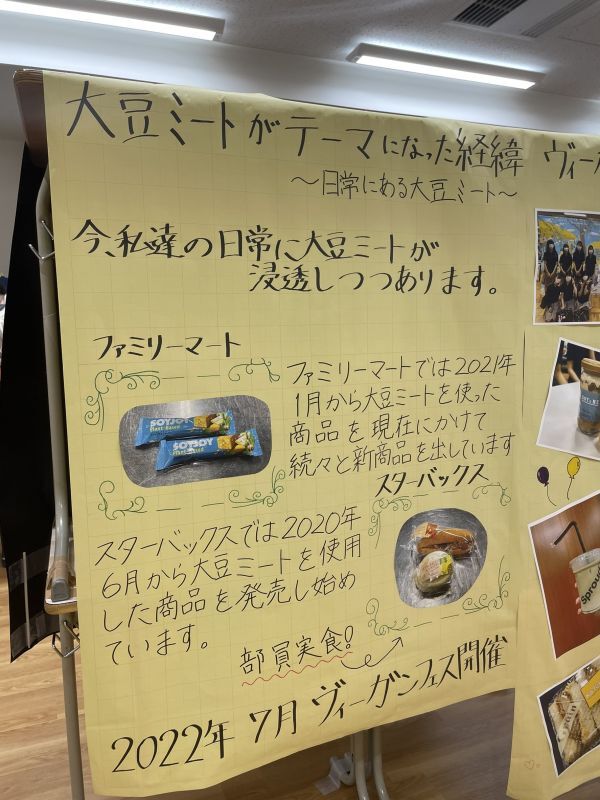 大豆ミートがテーマになった経緯
～日常にある大豆ミート～
今、私達の日常に大豆ミートが
浸透しつつあります。
ファミリーマート
SOYJOY
Plant Based
SOYJOY
Plant Based
ファミリーマートでは2021年
1月から大豆ミートを使った
商品を現在にかけて
続々と新商品を出しています
スターバックス
スターバックスでは2020年
6月から大豆ミートを使用
した商品を発売し始め
ています。
部員実食!
2022年 7月 ヴィーガンフェス開催
ヴィーガ